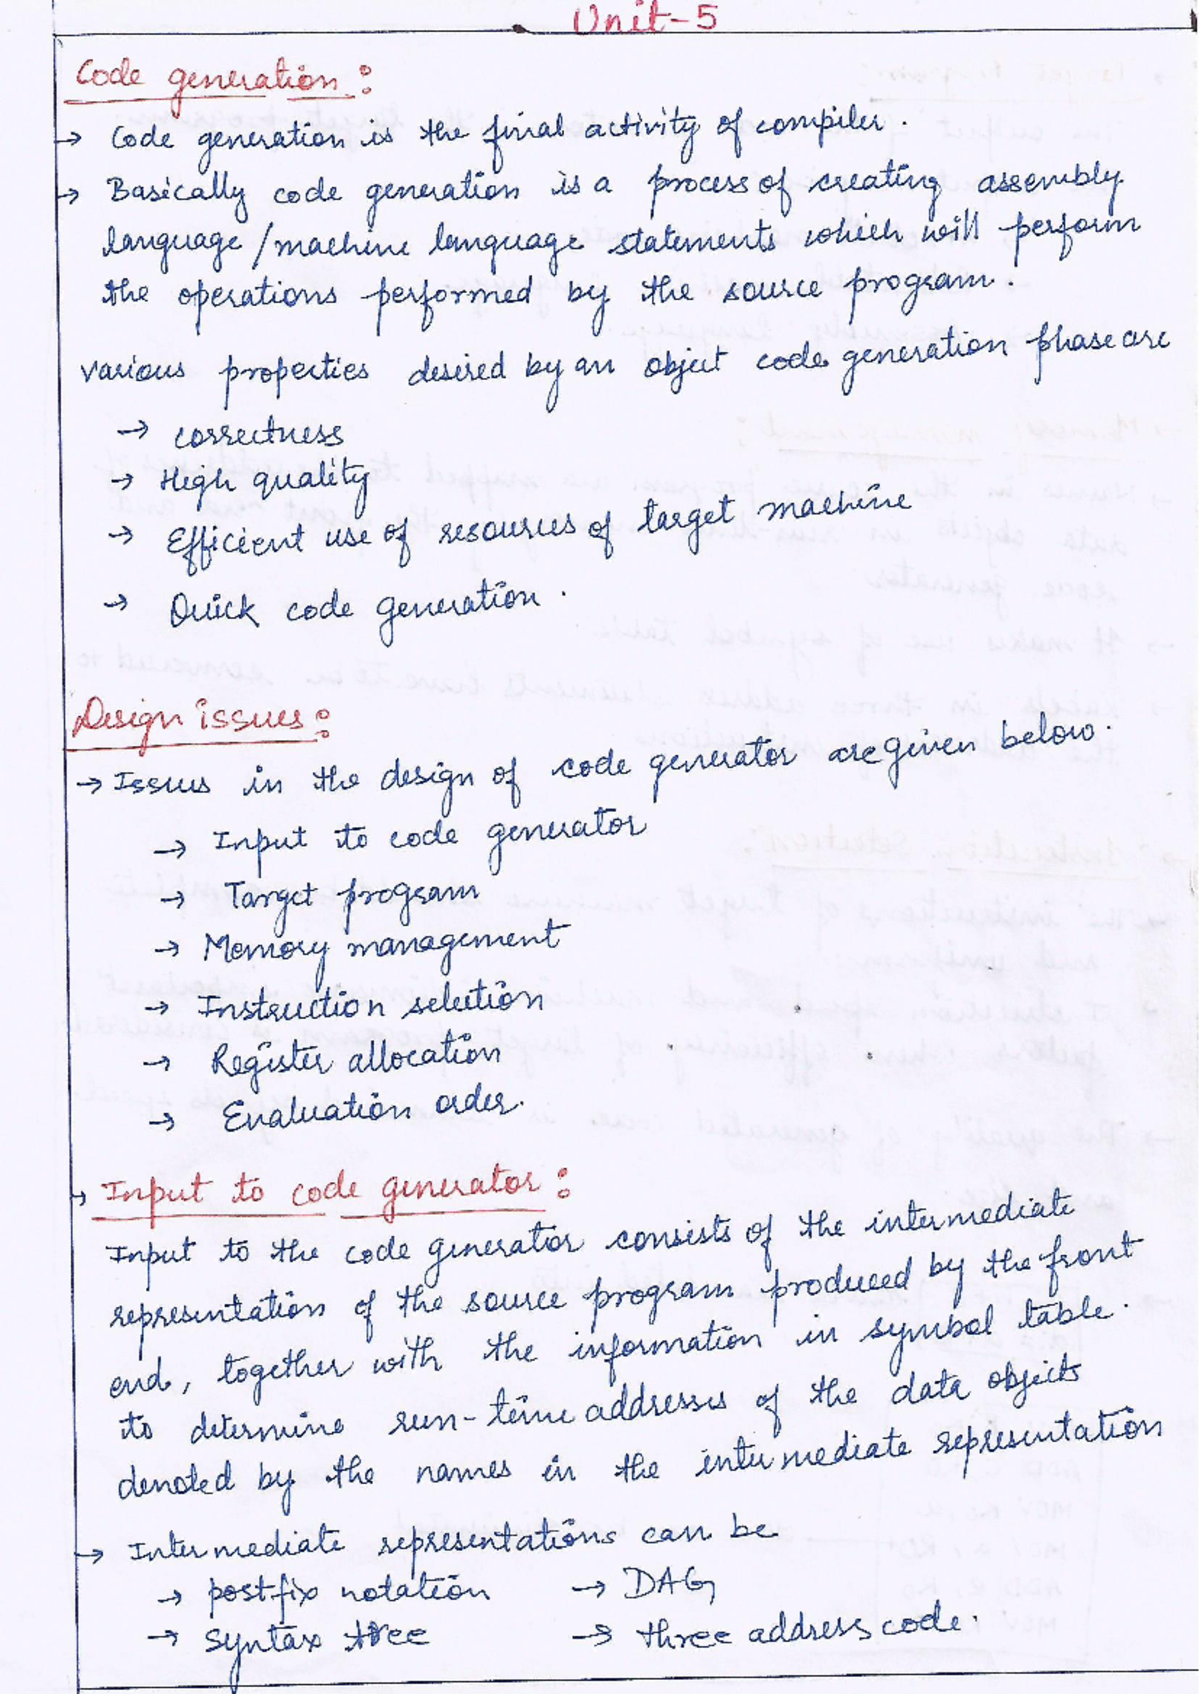 Unit-5
Code generation :
→ Code generation is the final activity of compiler.
→ Basically code generation is a process of creating assembly
language/machine language statements which will perform
the operations performed by the source program.
various properties desired by an object code generation phase are
→ correctness
→ High quality
→ Efficient use of resources of target machine
→ Quick code generation.
Design issues :
→ Issues in the design of code generator are given below.
→ Input to code generator
→ Target program
→ Memory management
→ Instruction selection
→ Register allocation
→ Evaluation order.
→ Input to code generator :
Input to the code generator consists of the intermediate
representation of the source program produced by the front
end, together with the information in symbol table.
to determine run-time addresses of the data objects
denoted by the names in the intermediate representation
→ Intermediate representations can be
→ postfix notation → DAG
→ syntax tree → three address code.